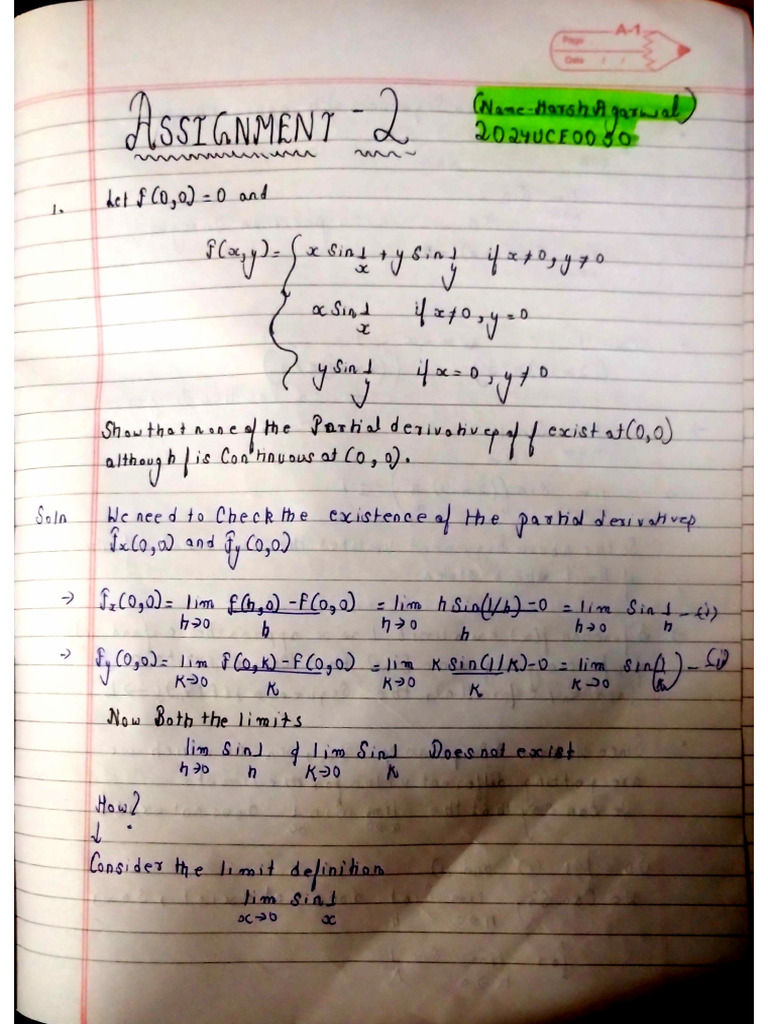 A-1
Page
Date / /
ASSIGNMENT - 2
(Name - Harsh Agarwal)
2024UCE0050
1. Let f(0,0) = 0 and
f(x,y) = { x sin 1/x + y sin 1/y if x ≠ 0, y ≠ 0
x sin 1/x if x ≠ 0, y = 0
y sin 1/y if x = 0, y ≠ 0
Show that none of the Partial derivatives of f exist at (0,0)
although f is Continuous at (0,0).
Soln We need to Check the existence of the partial derivatives
fx(0,0) and fy(0,0)
→ fx(0,0) = lim h→0 f(h,0) - f(0,0) / h = lim h→0 h sin(1/h) - 0 / h = lim h→0 sin 1/h - (i)
→ fy(0,0) = lim k→0 f(0,k) - f(0,0) / k = lim k→0 k sin(1/k) - 0 / k = lim k→0 sin(1/k) - (ii)
Now Both the limits
lim h→0 sin 1/h & lim k→0 sin 1/k Does not exist
How?
↓
Consider the limit definition
lim x→0 sin 1/x